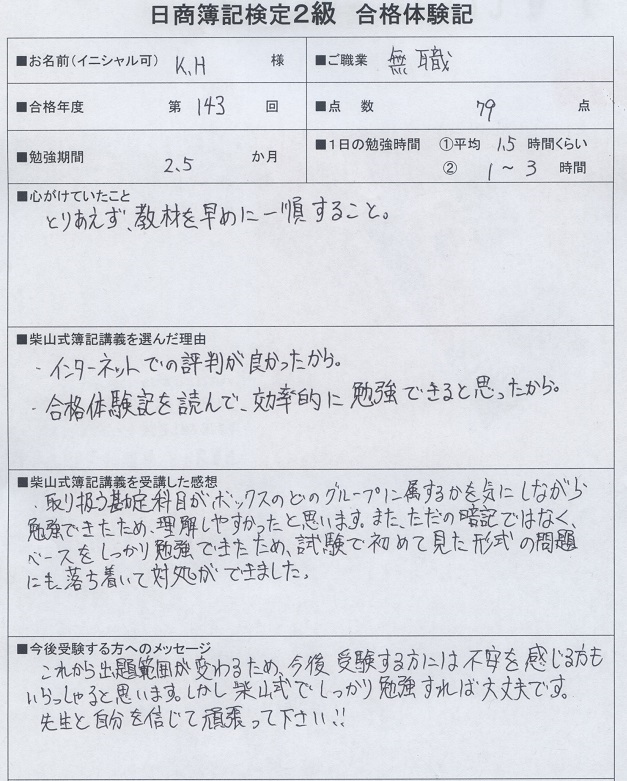 日商簿記検定2級 合格体験記
■お名前(イニシャル可) K.H 様
■ご職業 無職
■合格年度 第 143 回
■点 数 79 点
■勉強期間 2.5 か月
■1日の勉強時間 ①平均 1.5 時間くらい
② 1～3 時間
■心がけていたこと
とりあえず、教材を早めに一順すること。
■柴山式簿記講義を選んだ理由
・インターネットでの評判が良かったから。
・合格体験記を読んで、効率的に勉強できると思ったから。
■柴山式簿記講義を受講した感想
・取り扱う勘定科目がボックスのどのグループに属するかを気にしながら
勉強できたため、理解しやすかったと思います。また、ただの暗記ではなく、
ベースをしっかり勉強できたため、試験で初めて見た形式の問題
にも、落ち着いて対処ができました。
■今後受験する方へのメッセージ
これから出題範囲が変わるため、今後受験する方には不安を感じる方も
いらっしゃると思います。しかし柴山式でしっかり勉強すれば大丈夫です。
先生と自分を信じて頑張って下さい!!